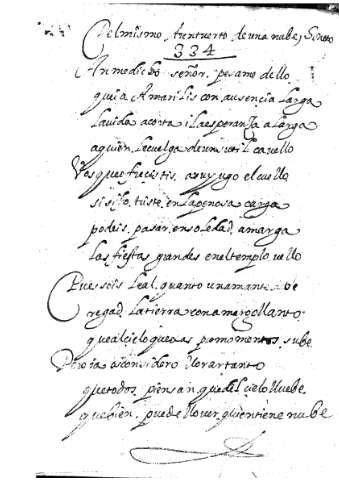 Del mismo A un tuerto de una nube, Soneto
334
An me dicho señor, pesame dello
que ia Amarilis con ausencia larga
la vida acorta i la esperanza alarga
a quien le cuelga de un sutil cavello
Vos que ofrecistis a su yugo el cuello
si sito, triste, en la penosa carga
podeis pasar en soledad amarga
las fiestas grandes en el templo vello
Pues sois leal, quanto un amante
regad la tierra con amargo llanto
que al cielo quexas por momentos sube
Pero ia os considero llorar tanto
que todos piensan que del cielo llueve
que bien puede llover quien tiene nube